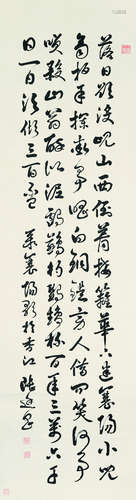 落日欲沒峴山西倒著接籬華下迷襄陽小兒
齊拍手攔街爭唱白銅鞮旁人借問笑何事
笑殺山翁醉似泥鸕鶿杓鸚鵡杯百年三萬六千
日一日須傾三百盃 襄陽歌於香江